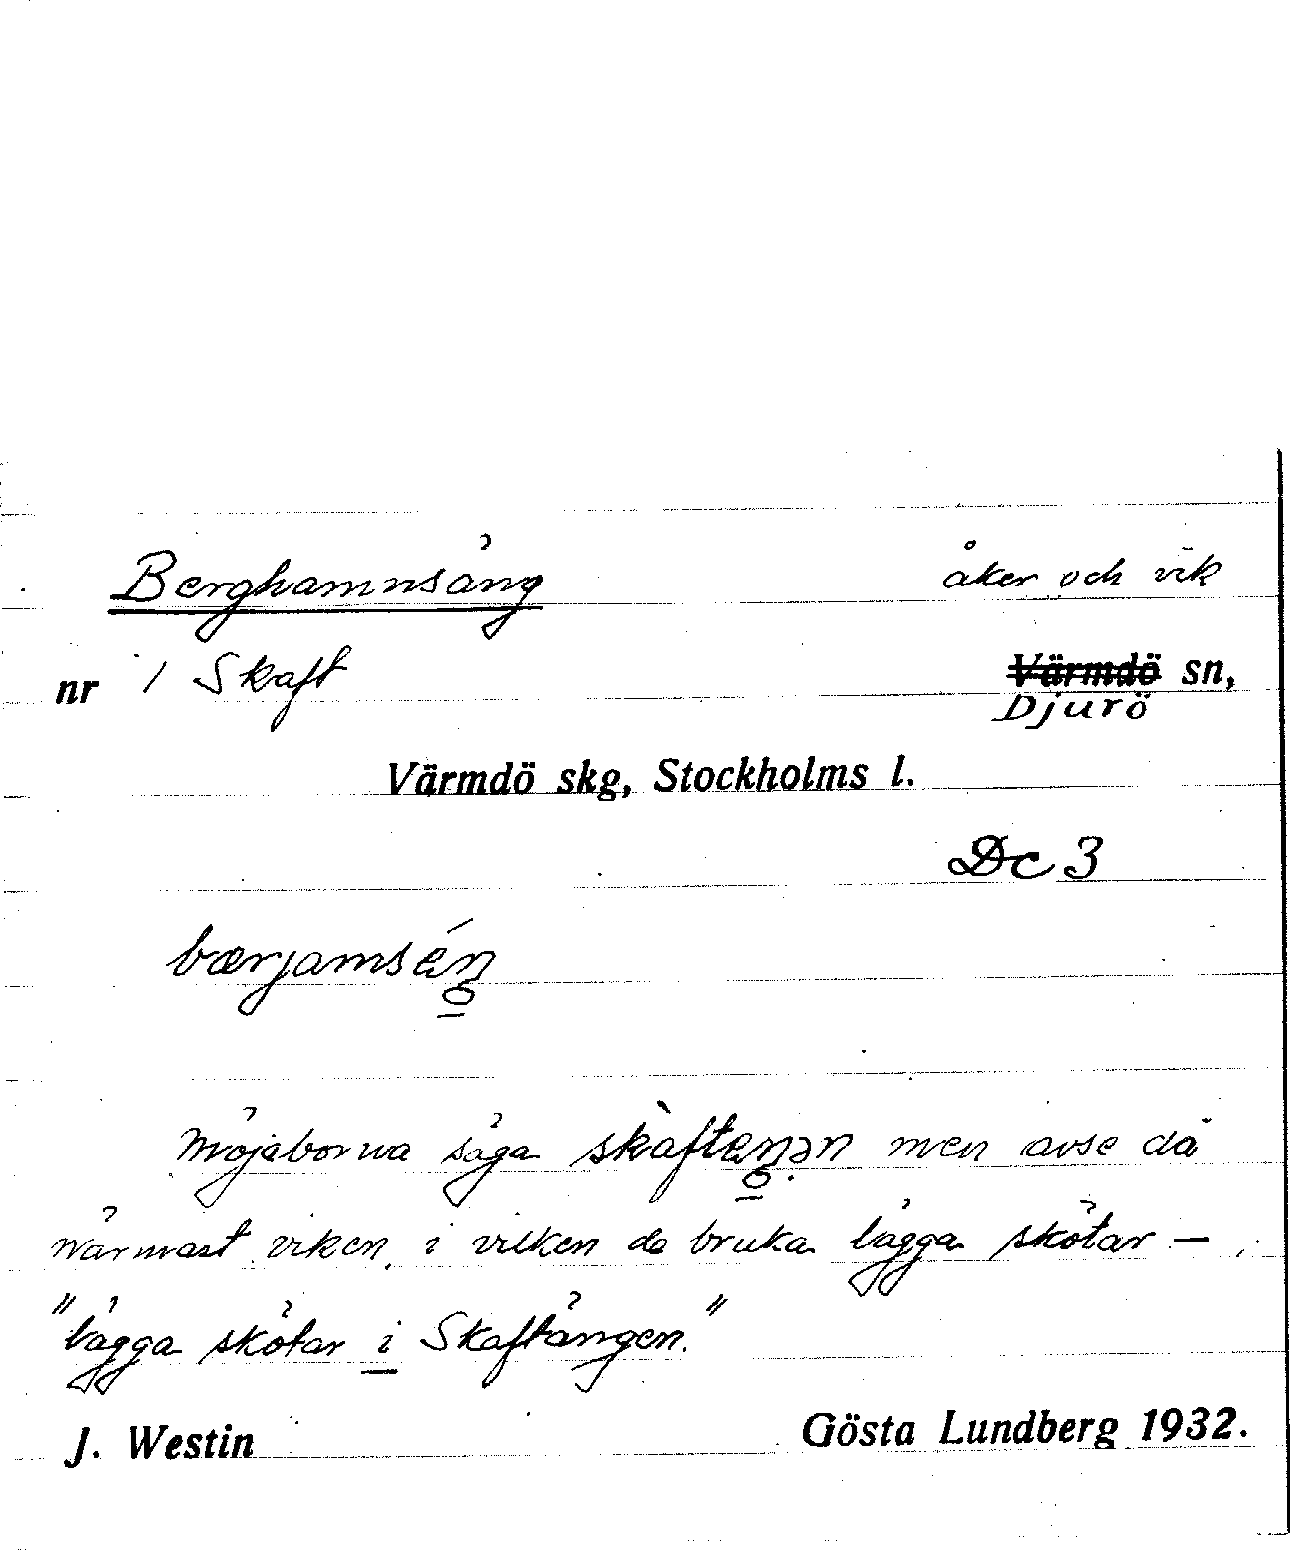 Berghamnsäng åker och vik
nr 1 Skaft ~~Värmdö~~ sn,
Djurö
Värmdö skg, Stockholms l.
Dc 3
bærjamsáŋ
Möjaborna säga skàftaŋən men avse då
närmast viken, i vilken de bruka lägga skötar –
"lägga skötar i Skaftängen."
J. Westin Gösta Lundberg 1932.